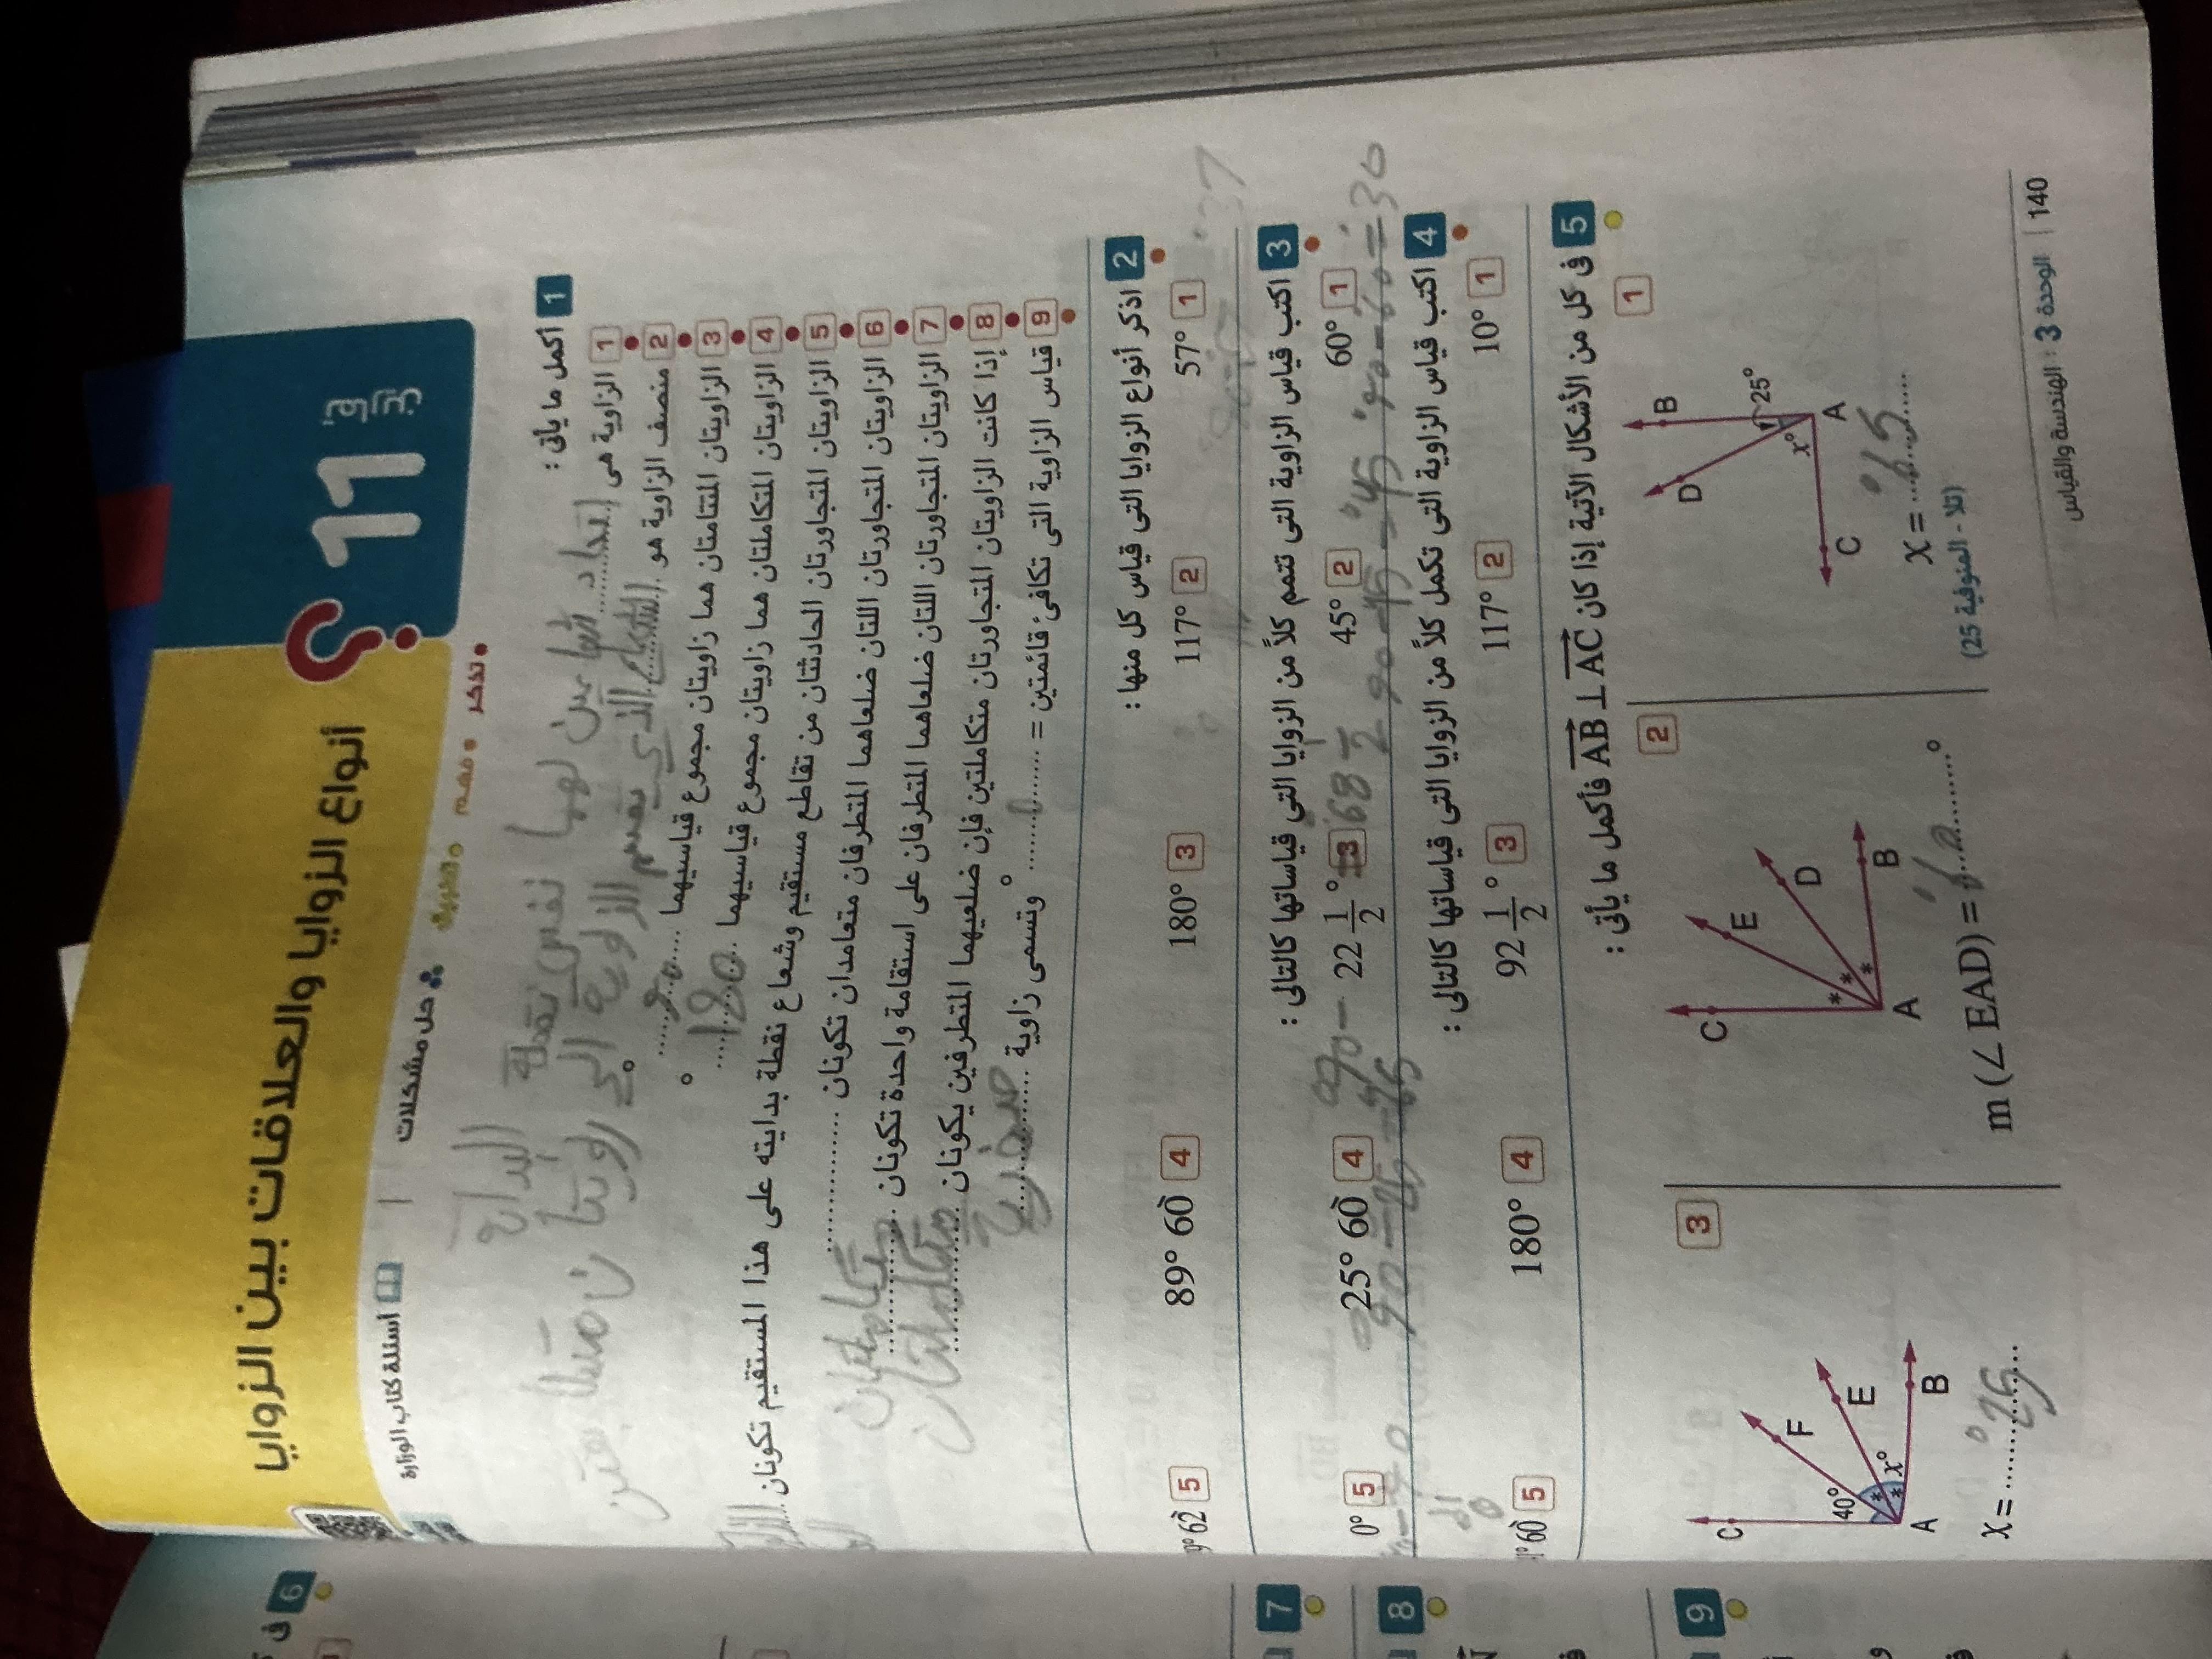 تمارين
11
؟
أنواع الزوايا والعلاقات بين الزوايا
• تذكر • فهم ○ تطبيق حل مشكلات | أسئلة كتاب الوزارة
1 أكمل ما يأتى :
1 الزاوية هى اتحاد شعاعين لهما نفس نقطة البداية
2 منصف الزاوية هو الشعاع الذي يقسم الزاوية إلى زاويتان متطابقتين
3 الزاويتان المتتامتان هما زاويتان مجموع قياسيهما 90 °
4 الزاويتان المتكاملتان هما زاويتان مجموع قياسيهما 180 °
5 الزاويتان المتجاورتان الحادثتان من تقاطع مستقيم وشعاع نقطة بدايته على هذا المستقيم تكونان
6 الزاويتان المتجاورتان اللتان ضلعاهما المتطرفان متعامدان تكونان ..........
7 الزاويتان المتجاورتان اللتان ضلعاهما المتطرفان على استقامة واحدة تكونان متكاملتان
8 إذا كانت الزاويتان المتجاورتان متكاملتين فإن ضلعيهما المتطرفين يكونان متكاملتان
9 قياس الزاوية التى تكافئ قائمتين = .......... ° وتسمى زاوية
2 اذكر أنواع الزوايا التى قياس كل منها :
1 57° 2 117° 3 180° 4 89° 60` 5 62`
3 اكتب قياس الزاوية التى تتمم كلاً من الزوايا التى قياساتها كالتالى :
1 60° 2 45° 3 22 1/2 ° 4 25° 60` 5 0°
4 اكتب قياس الزاوية التى تكمل كلاً من الزوايا التى قياساتها كالتالى :
1 10° 2 117° 3 92 1/2 ° 4 180° 5 60`
5 فى كل من الأشكال الآتية إذا كان AB ⊥ AC فأكمل ما يأتى :
1
D B 25° x° C A
x = 65
(تلا - المنوفية 25)
2
C E D A B
m (∠ EAD) = ..........°
3
C F E 40° x° A B
x = 25
140 | الوحدة 3 : الهندسة والقياس
6 فى
7
8
9